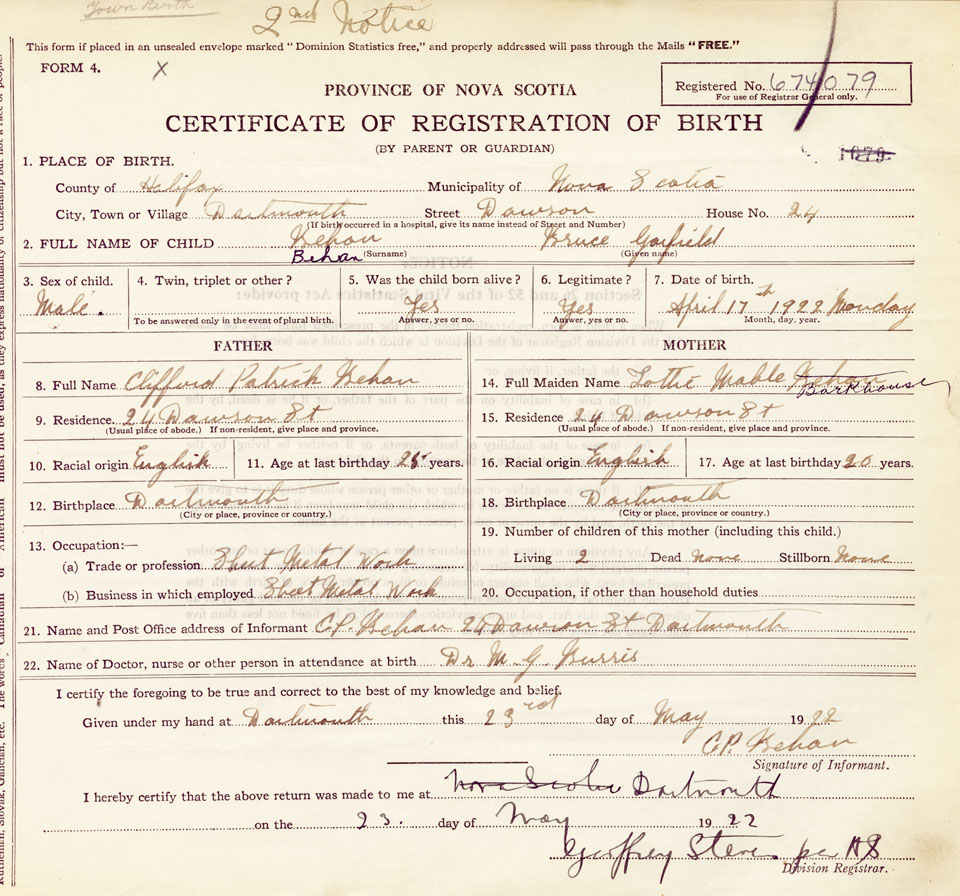 Town Birth
2nd Notice
This form if placed in an unsealed envelope marked "Dominion Statistics free," and properly addressed will pass through the Mails "FREE."
FORM 4. X
Registered No. 674079
For use of Registrar General only.
PROVINCE OF NOVA SCOTIA
CERTIFICATE OF REGISTRATION OF BIRTH
(BY PARENT OR GUARDIAN)
1079
1. PLACE OF BIRTH.
County of Halifax Municipality of Nova Scotia
City, Town or Village Dartmouth Street Dawson House No. 24
(If birth occurred in a hospital, give its name instead of Street and Number)
2. FULL NAME OF CHILD Behan Bruce Garfield
Behan (Surname) (Given name)
3. Sex of child. 4. Twin, triplet or other? 5. Was the child born alive? 6. Legitimate? 7. Date of birth.
Male. Yes Yes April 17th 1922 Monday
To be answered only in the event of plural birth. Answer, yes or no. Answer, yes or no. Month, day, year.
FATHER MOTHER
8. Full Name Clifford Patrick Behan 14. Full Maiden Name Lottie Mable Behan
Barkhouse
9. Residence 24 Dawson St 15. Residence 24 Dawson St
(Usual place of abode.) If non-resident, give place and province. (Usual place of abode.) If non-resident, give place and province.
10. Racial origin English 11. Age at last birthday 25 years. 16. Racial origin English 17. Age at last birthday 20 years.
12. Birthplace Dartmouth 18. Birthplace Dartmouth
(City or place, province or country.) (City or place, province or country.)
19. Number of children of this mother (including this child.)
13. Occupation:—
(a) Trade or profession Sheet Metal Work Living 2 Dead None Stillborn None
(b) Business in which employed Sheet Metal Work 20. Occupation, if other than household duties
21. Name and Post Office address of Informant C.P. Behan 24 Dawson St Dartmouth
22. Name of Doctor, nurse or other person in attendance at birth Dr M. G. Burris
I certify the foregoing to be true and correct to the best of my knowledge and belief.
Given under my hand at Dartmouth this 23rd day of May 1922
C.P. Behan
Signature of Informant.
I hereby certify that the above return was made to me at Nova Scotia Dartmouth
on the 23. day of May 1922
Geoffrey Stevens per
Division Registrar.